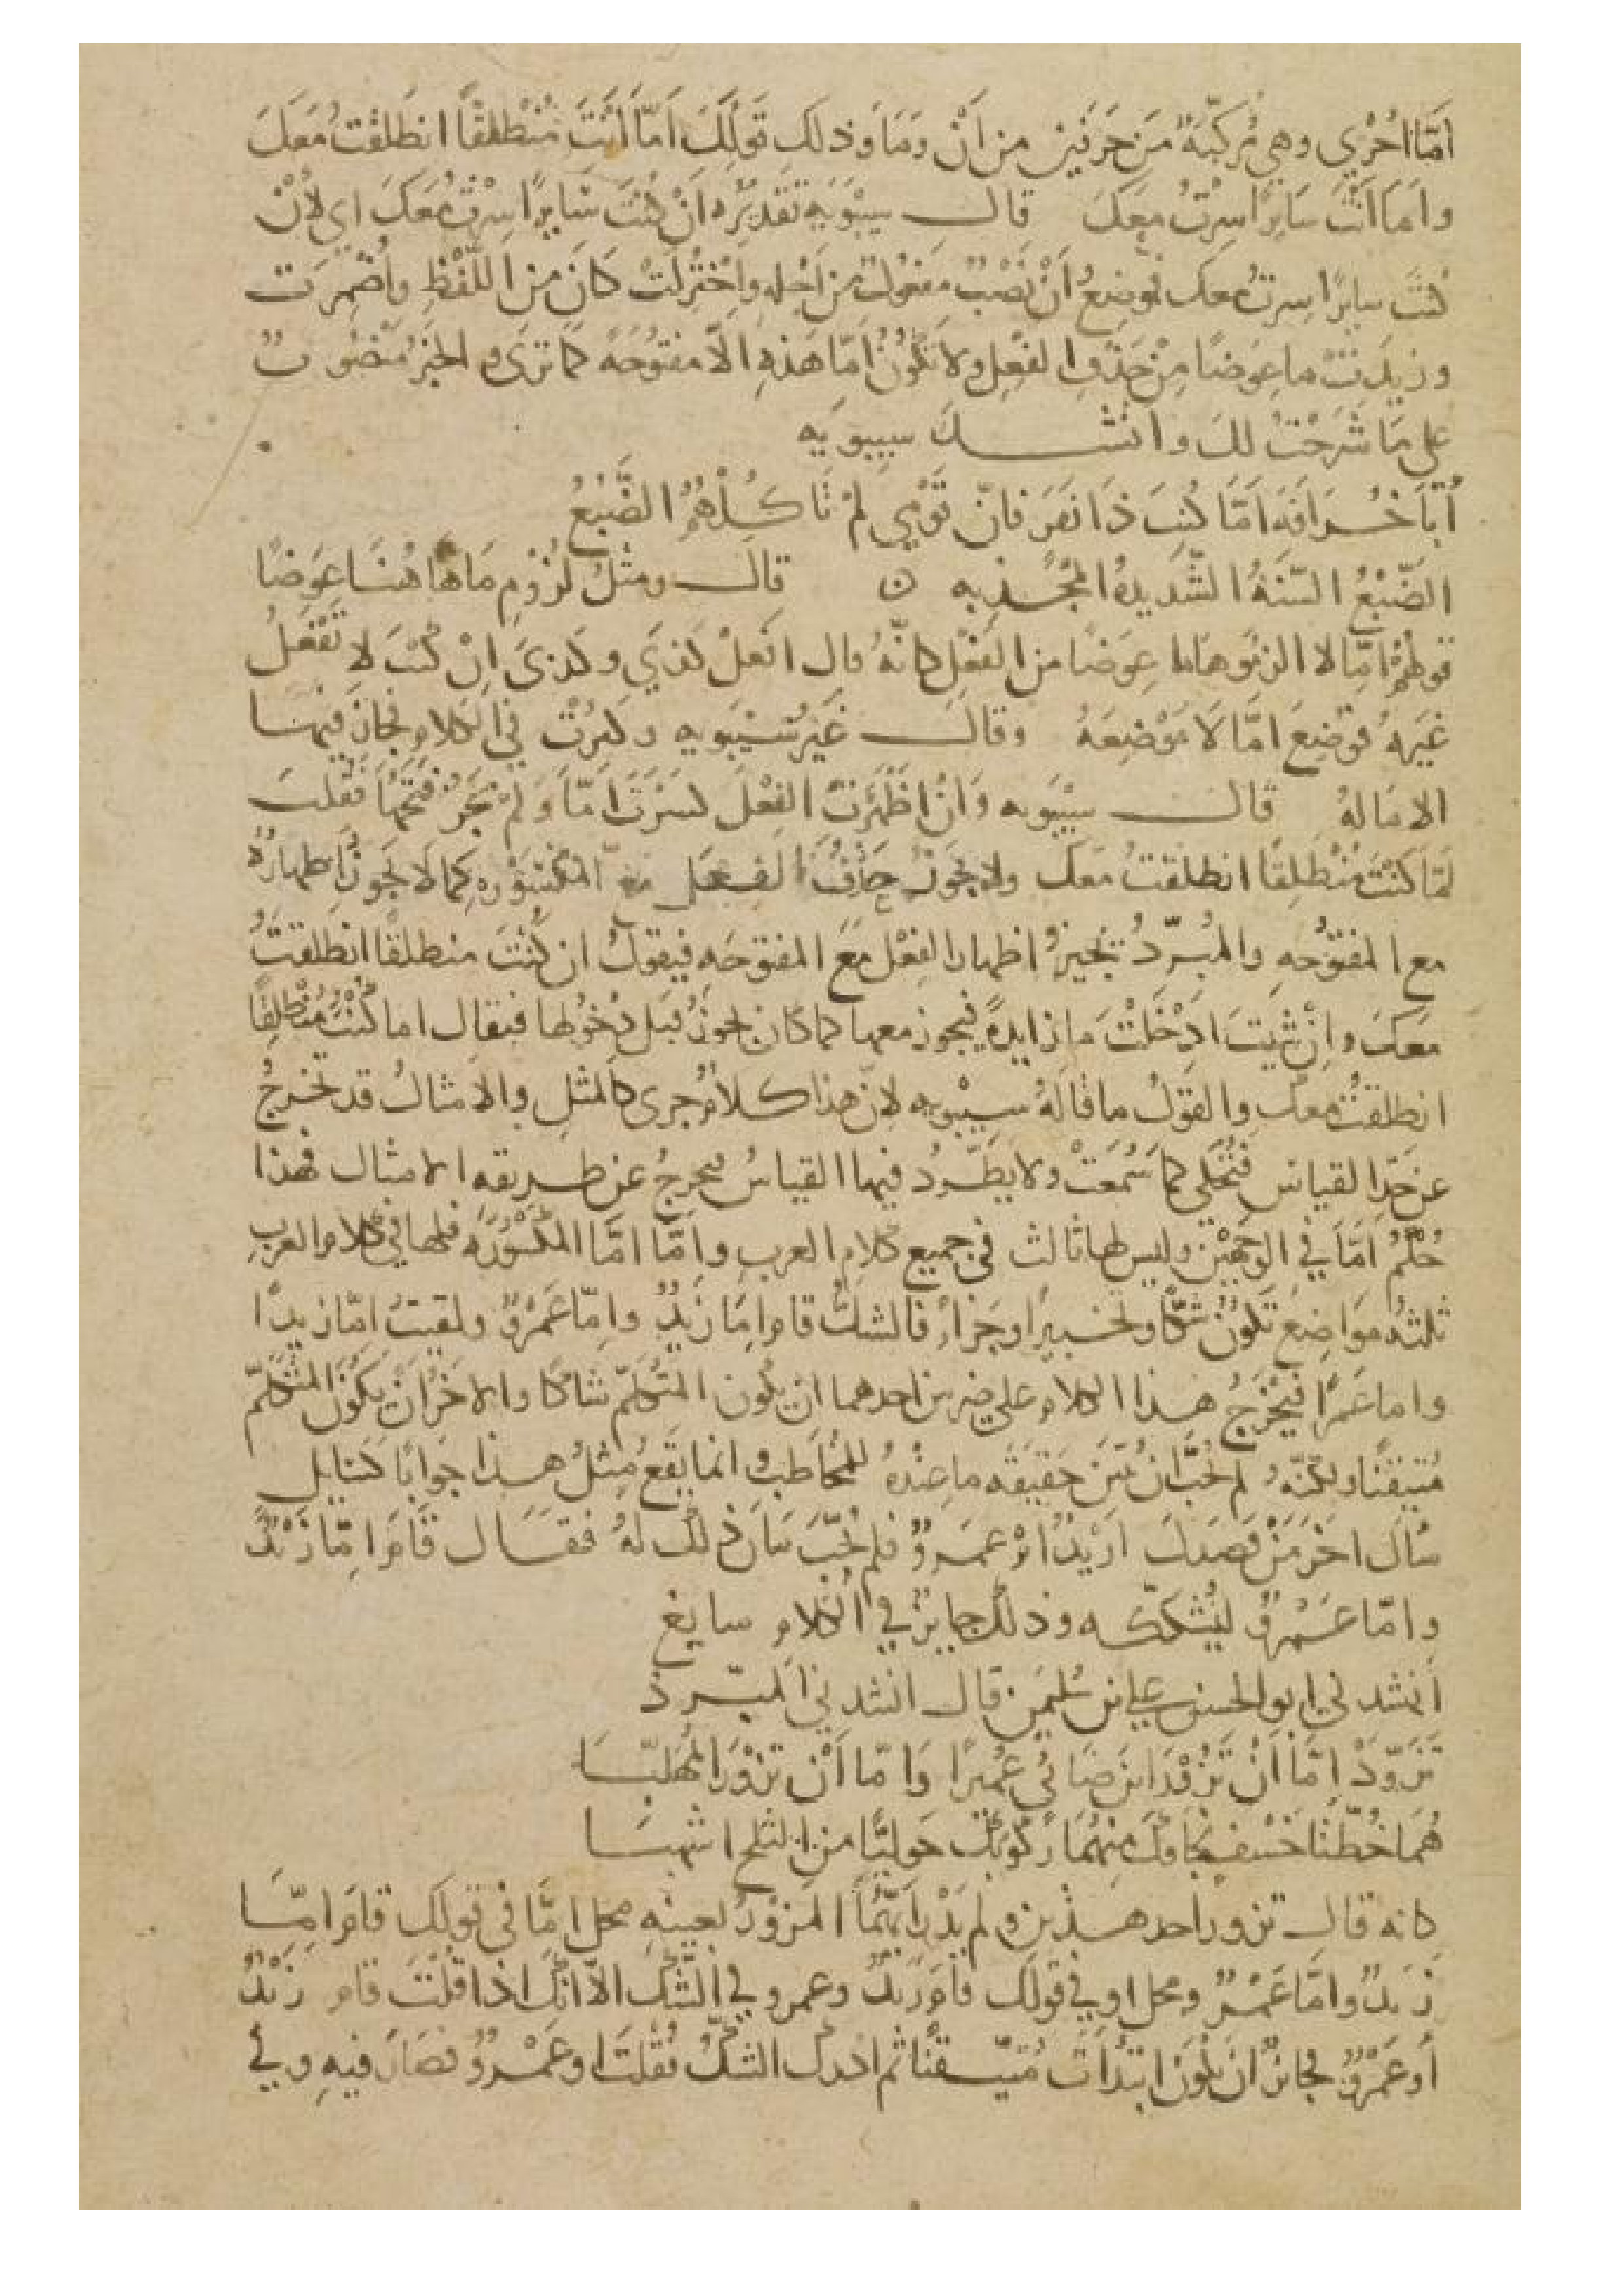 أمّا اخْري وهي مُركبّة من حَرفَين من أنْ وَمَا وذلك قولُك أمّا أَنتَ مُنْطلقًا انطلقتُ مَعَكَ
وأمَا انْتَ سَايرًا سِرْتُ معَكَ قال سيبَويه تقديرُه انْ كنتَ سَايرًا سِرْتُ مَعَكَ اي لأنْ
كنتَ سايرًا سِرتُ معك فموضعُ أنْ نصْبٌ مفعُولٌ من اجله واخْتُزلَتْ كانَ من اللّفْظِ واُضْمِرَت
وزيدَتْ ما عِوَضًا مِنْ حَذْفِ الفعْلِ ولا تكُونُ أمّا هَذهِ الاّ مفتوُحَة كما ترَى والخبَرُ مَنْصُوبٌ
على مَا شَرحْتُ لكَ وانشد سيبويه
أبَا خُرَافَة أمّا كُنتَ ذَا نفَر فانّ قَوْمي لَمْ تَاكُلْهُمُ الضَّبْعُ
الضّبْعُ السّنَةُ الشّديدةُ المجْدبه قال ومثلُ لزُوْمِ مَا هَا هُنَا عِوَضًا
قولهُمْ إمّا لا الزموهَا ما عِوَضًا من الفعْلِ كانّهُ قال افعلْ كذي وكذي إنْ كنتَ لا تَفْعَلُ
غيَرهُ فوَضِعَ امّا لَا مَوْضِعَهُ وقالَ غيَرُ سيبَويه وكثرُتْ في الكلام فجازَ فيهَا
الامَالهُ قال سيْبَويه وَانْ اظْهَرتَ الفِعْلَ كسَرْتَ امّا وَلمْ يَجُزْ فتَحُهَا فقُلتَ
إمّا كنْتَ مُنْطلِقًا انطلقتُ مَعَكَ ولا يجوُزُ حذْفُ الفعل مع المكسُوْره كما لا يَجوزُ اظهارُهُ
مع المفتوُحهِ والمُبَرّدُ يُجيزُ اظهار الفِعْلِ مَعَ المفتوحَه فيقولُ ان كُنْتَ منطلقًا انطلقتُ
مَعَكَ وإنْ شيتَ ادْخَلْتَ ما زايدةً فيجوز معها كما كان يجوزُ قبَل دُخوُلها فيقال اما كُنتَ مُنْطلِقًا
انطلقتُ معك والقوْلُ ما قالهُ سيبْويه لانّ هذا كلاَمٌ جرى كالمثلِ والامثالُ قد تخرجُ
عن حَدّ القياس فتُحْكي كما سُمعَتْ ولا يَطّردُ فيها القياسُ فتخرجُ عن طريقه الامثال فهَذا
حُكمُ امَّا في الوَجهَيْن وليس لها ثالث في جميع كلامِ العربِ وأمّا امَّا المكسُوْرَه فلها في كلام العربِ
ثلثهُ موَاضِعَ تكُونُ شَكّا وتخييرًا وجَزاءً فالشكُ قام امّا زَيدٌ وامّا عَمْروٌ ولقيتُ امّا زيدًا
واما عَمْرًا فيخْرَجُ هذا الكلام على ضربين احدهما ان يكون المتكلّم شاكا والاخَرُ انْ يكونَ المتكلّم
مُتيقنًا ولكنّه لم يُحبَّ ان يُبيّنَ حَقيقَه ما عنْدهُ للمخَاطب وانما يقَعُ مِثلُ هذا جَوابًا كَسَايلٍ
سَأل اخَرَ مَنْ قصَدك ازيْدٌ امْ عَمروٌ فلم يُحبَّ بيَانَ ذلك لهُ فقَال قامَ امّا زيْدٌ
وامّا عَمْروٌ ليُشكّكه وذلك جايزٌ في الكلامِ سايغ
أنشد ني ابو الحسن علي بن سُليمَن قال انشد ني المبرّد
تَزوّدْ إمّا أنْ تَزُوْرَ ابنَ ضَابئٍ عُمَيرًا وَامّا أنْ تزوْرَ المُهلبّا
هُمَا خُطّتا خَسْفٍ نجَاؤكَ مِنهُمَا رُكوبُكَ حَوليّا من الثلج اشهبَا
كانه قال تزور احد هذين ولم يَدْر أيّهُمَا المَزُوْرُ بعينهِ ومحل امّا في قولك قامَ امّا
زَيدٌ وامّا عَمْروٌ ومحل او في قولك قامَ زَيدٌ وعمرو في الشّك الاّ انّك اذا قلْتَ قام زَيْدٌ
أو عَمْروٌ فجايزٌ انْ يكُون ابتدَأتَ مُتيقنًا ثم ادركَ الشكُ فقلتَ او عَمْروٌ فصَارَ فيهِ وفي